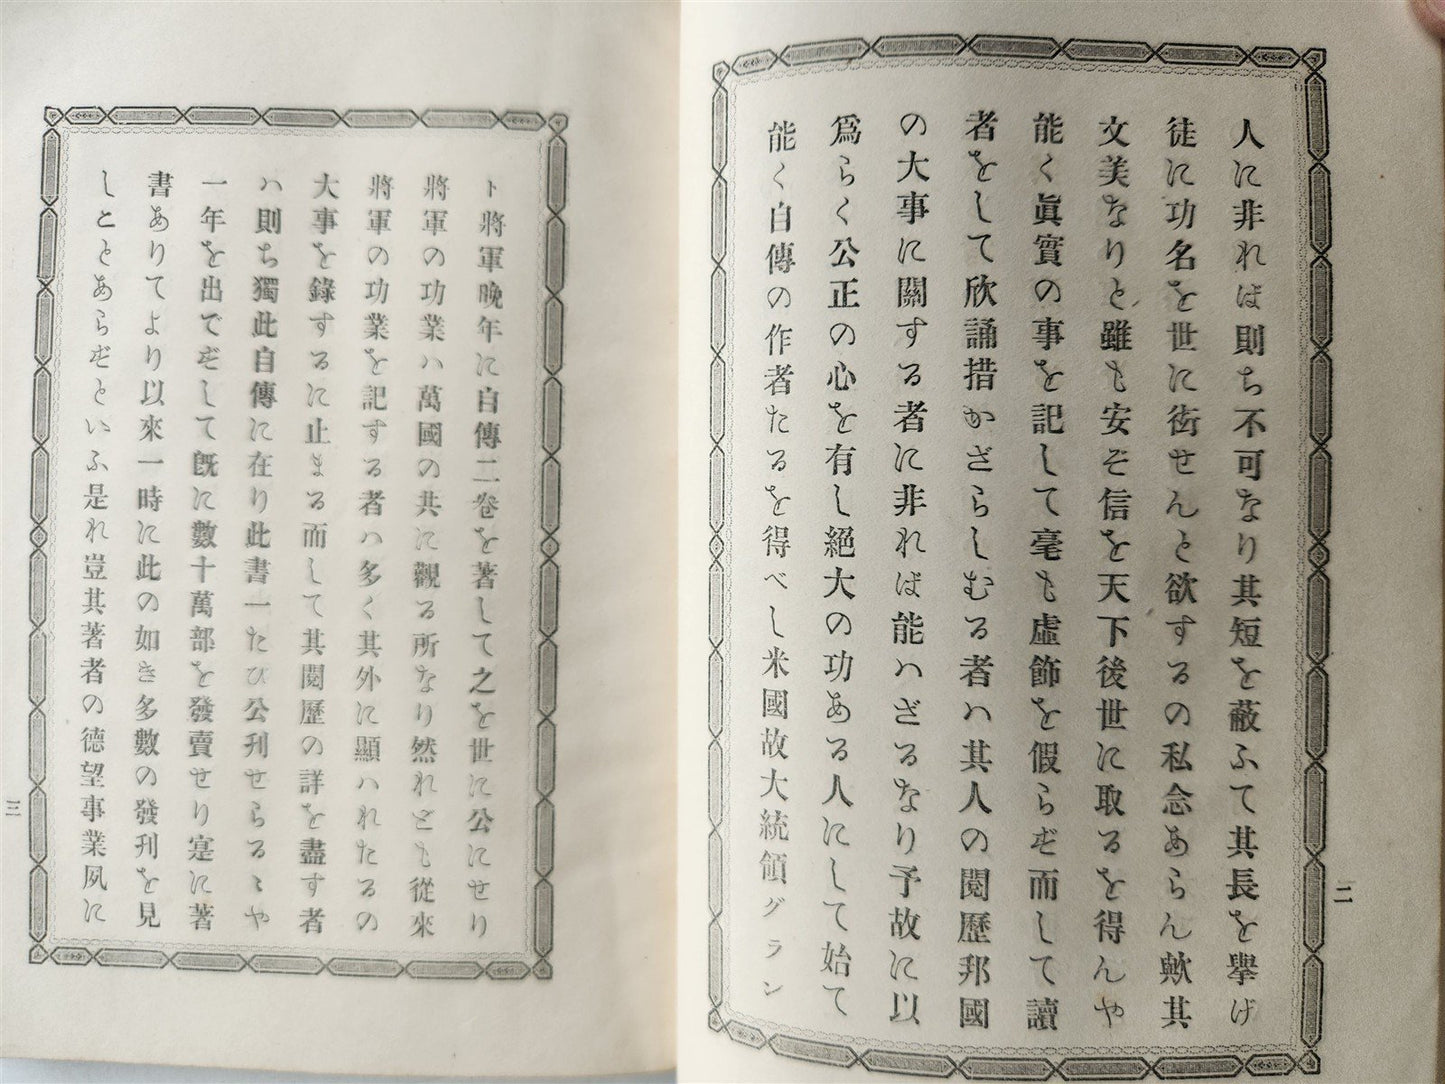 人に非れば則ち不可なり其短を蔽ふて其長を擧げ
徒に功名を世に衒せんと欲するの私念あらん歟其
文美なりと雖も安ぞ信を天下後世に取るを得んや
能く眞實の事を記して毫も虛飾を假らず而して讀
者をして欣誦措かざらしむる者ハ其人の閱歷邦國
の大事に關する者に非れば能ハざるなり予故に以
爲らく公正の心を有し絕大の功ある人にして始て
能く自傳の作者たるを得べし米國故大統領グラン
二
ト將軍晚年に自傳二卷を著して之を世に公にせり
將軍の功業ハ萬國の共に觀る所なり然れども從來
將軍の功業を記する者ハ多く其外に顯ハれたるの
大事を錄するに止まる而して其閱歷の詳を盡す者
ハ則ち獨此自傳に在り此書一たび公刋せらるゝや
一年を出でずして旣に數十萬部を發賣せり寔に著
書ありてより以來一時に此の如き多數の發刋を見
しことあらずといふ是れ豈其著者の德望事業夙に
三